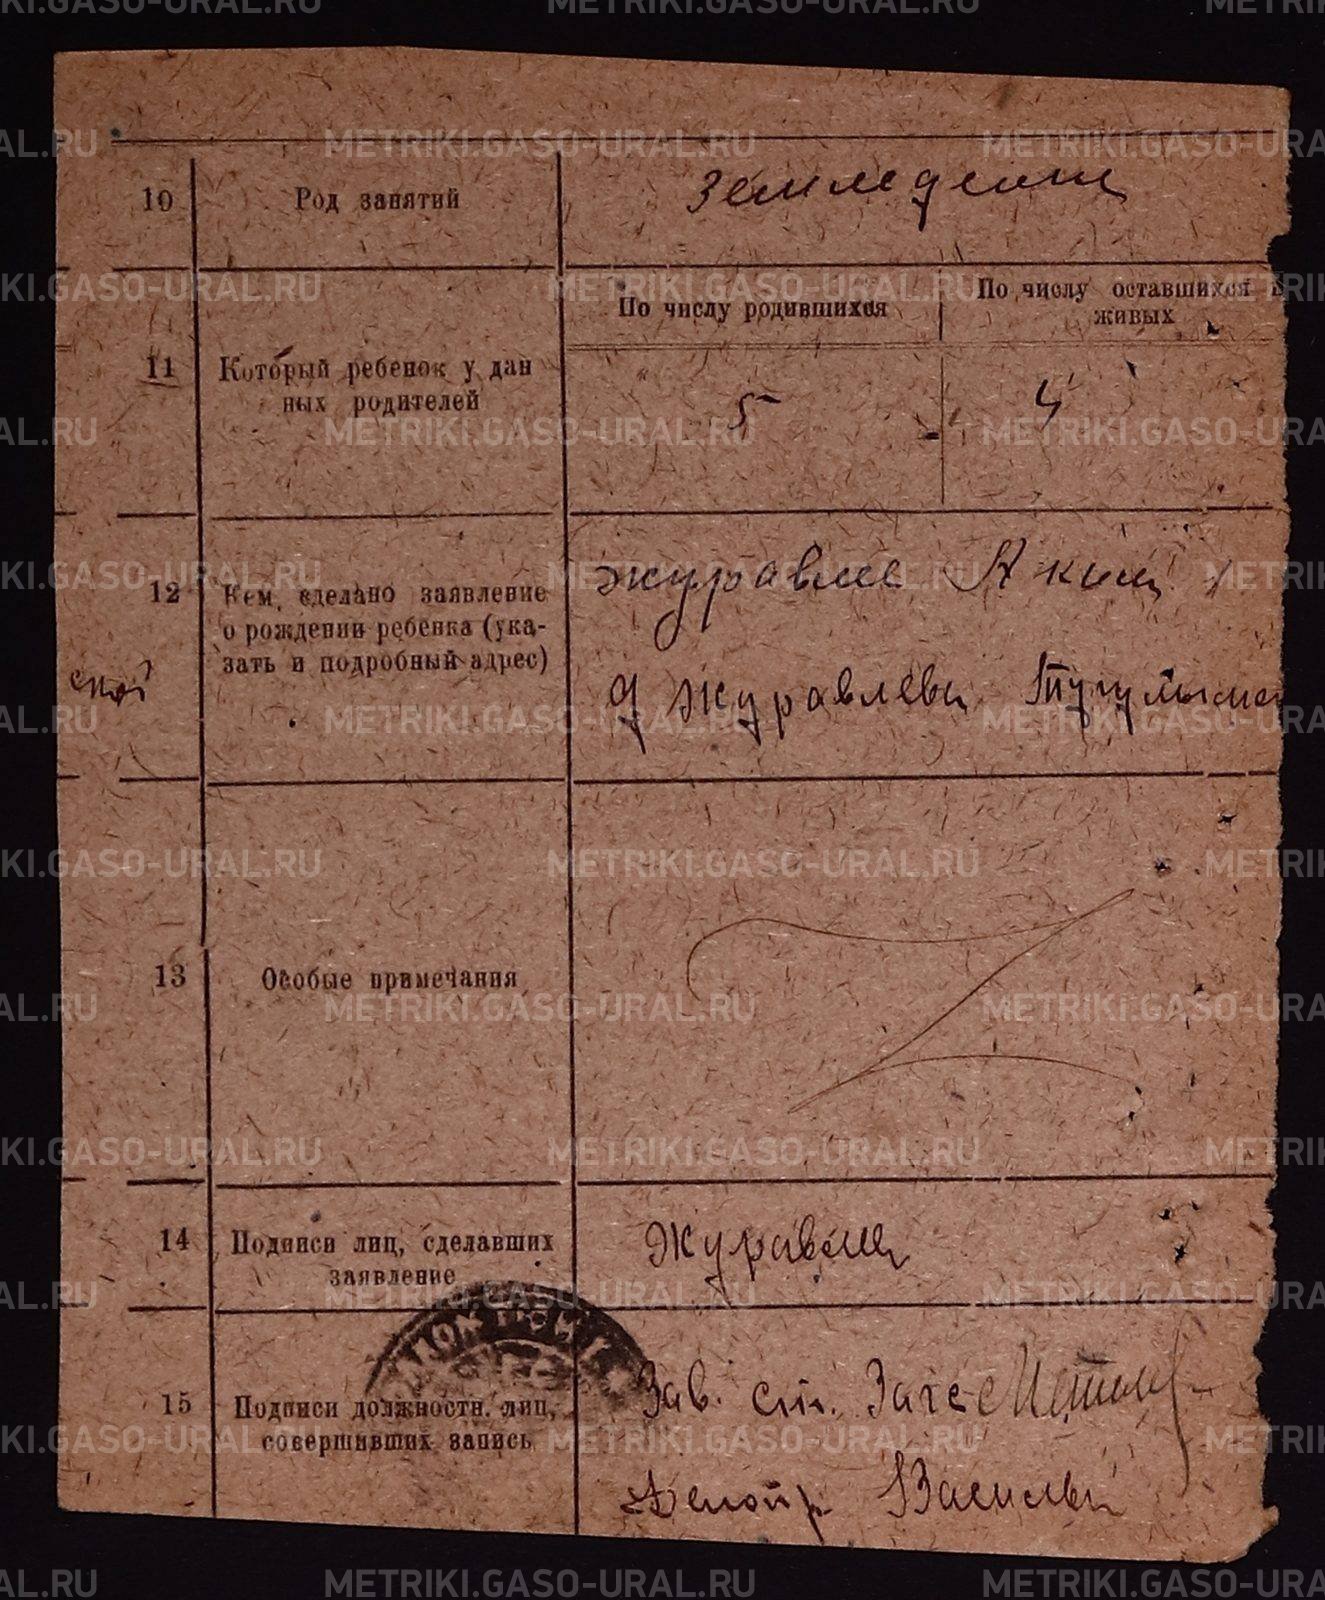 10
Род занятий
земледелие
11
Который ребенок у дан
ных родителей
По числу родившихся
По числу оставшихся в
живых
5
4
12
Кем сделано заявление
о рождении ребенка (ука-
зать и подробный адрес)
Журавлев Аким
д Журавлева Тугулымск
ской
13
Особые примечания
14
Подписи лиц, сделавших
заявление
Журавлев
15
Подписи должностн. лиц,
совершивших запись
Зав. ст. Загс
Делопр Васильев
METRIKI.GASO-URAL.RU